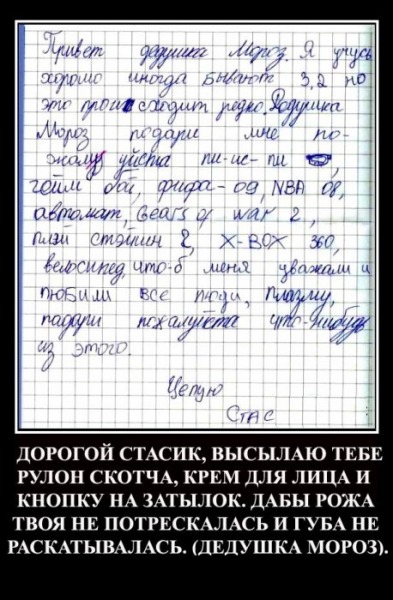 Привет дедушка Мороз. Я учусь
хорошо иногда бывают 3,2 но
это происходит редко. Дедушка
Мороз подари мне по-
жалуйста пи-ис-пи,
гейм бой, фифа-09, NBA 08,
автомат, Gears of war 2,
плэй стэйшн 2, X-BOX 360,
велосипед, что-б меня уважали и
любили все люди, плазму,
падари пожалуйста что-нибудь
из этого.
Целую
Стас
ДОРОГОЙ СТАСИК, ВЫСЫЛАЮ ТЕБЕ
РУЛОН СКОТЧА, КРЕМ ДЛЯ ЛИЦА И
КНОПКУ НА ЗАТЫЛОК. ДАБЫ РОЖА
ТВОЯ НЕ ПОТРЕСКАЛАСЬ И ГУБА НЕ
РАСКАТЫВАЛАСЬ. (ДЕДУШКА МОРОЗ).